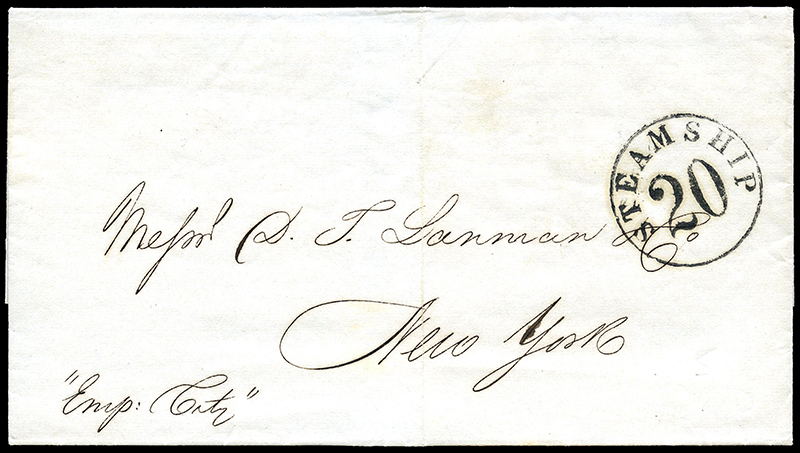 STEAMSHIP
20
Messrs D. T. Lanman & Co
New York
"Emp: City"